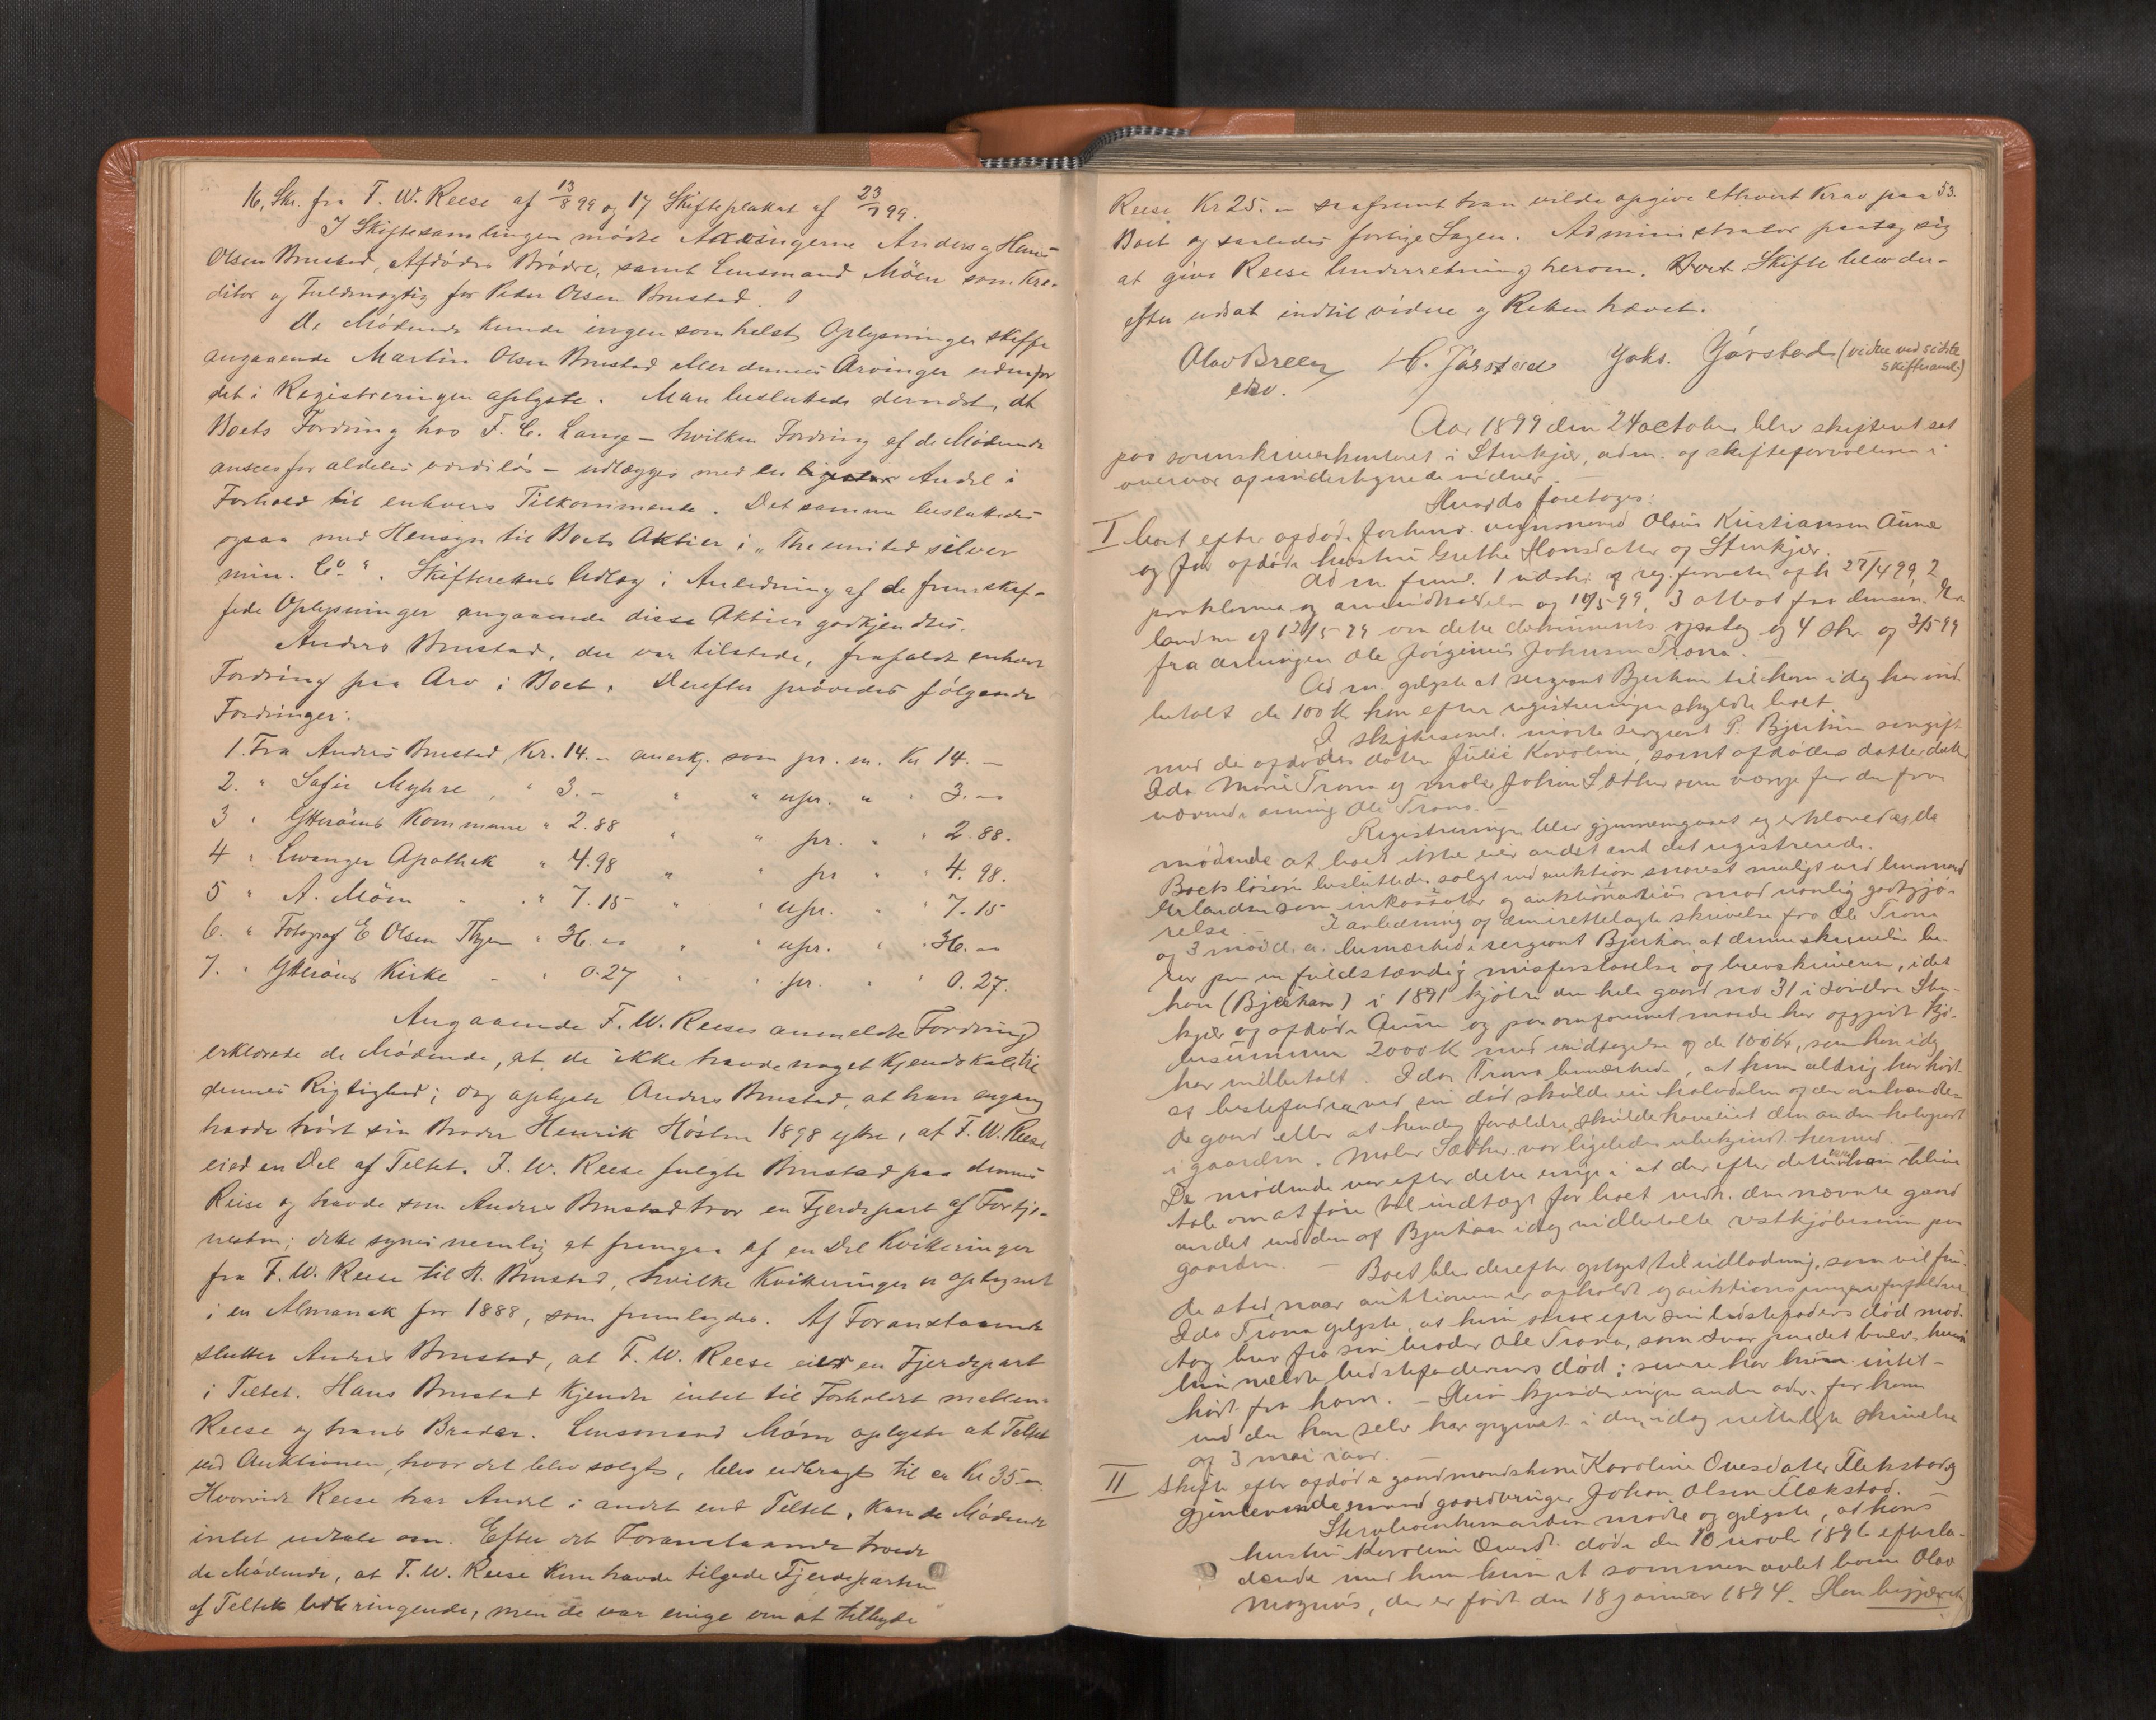 16, Skr. fra F. W. Reese af 13/8 99 og 17 Skifteplakat af 23/7 99.
I Skiftesamlingen mødte Arvingerne Anders og Hans
Olsen Brustad, Afdødes Brødre, samt Lensmand Möen som Kre-
ditor og Fuldmægtig for Peder Olsen Brustad.
De Mødende kunde ingen somhelst Oplysninger skaffe
angaaende Martin Olsen Brustad eller dennes Arvinger udenfor
det i Registreringen oplyste. Man besluttede dernæst, at
Boets Fordring hos F. C. Lange – hvilken Fordring af de Mødende
ansees for aldeles værdiløs – udlægges med en Andel i
Forhold til enhvers Tilkommende. Det samme besluttedes
ogsaa med Hensyn til Boets Aktier i "The united silver
min. Co.". Skifterettens Udlæg i Anledning af de fremskaf-
fede Oplysninger angaaende disse Aktier godkjendtes.
Anders Brustad, der var tilstede, frafaldt enhver
Fordring paa Arv i Boet. Derefter prøvedes følgende
Fordringer:
1. Fra Anders Brustad Kr. 14. – anerkj. som pr. m. Kr 14. –
2. " Sofie Myhre, " 3. – " " upr. " " 3. –
3 " Ytterøens Kommune " 2.88 " " pr. " " 2.88.
4 " Levanger Apothek " 4.98 " " pr " " 4.98.
5 " A. Möen " " 7.15 " " upr. " " 7.15
6. " Fotograf E Olsen " 36. – " " upr. " " 36. –
7. " Ytterøens Kirke – " 0.27 " " pr. " " 0.27.
Angaaende F. W. Reeses anmeldte Fordring
erklærede de Mødende, at de ikke havde noget Kjendskab til
dennes Rigtighed; dog oplyste Anders Brustad, at han engang
havde hørt sin Broder Henrik Høsten 1898 ytre, at F. W. Reese
eied en Del af Teltet. F. W. Reese fulgte Brustad paa dennes
Reise og havde som Anders Brustad tror en Fjerdepart af Fortje-
nesten; dette synes nemlig at fremgaa af en Del Kvitteringer
fra F. W. Reese til H. Brustad, hvilke Kvitteringer er optegnet
i en Almanak for 1888, som fremlagdes. Af Foranstaaende
slutter Anders Brustad, at F. W. Reese eier en Fjerdepart
i Teltet. Hans Brustad kjendte intet til Forholdet mellem
Reese og hans Broder. Lensmand Möen oplyste at Teltet
ved Auktionen, hvor det blev solgt, blev udbragt til ca Kr 35 –
Hvorvidt Reese har Andel i andet end Teltet, kan de Mødende
intet udtale om. Efter det Foranstaaende troede
de Mødende, at F. W. Reese kun havde tilgode Fjerdeparten
af Teltets Udbringende, men de var enige om at tilbyde
53.
Reese Kr 25. – saafremt han vilde opgive ethvert Krav paa
Boet og saaledes forlige Sagen. Administrator paatog sig
at give Reese Underretning herom. Skifte blev der-
efter udsat indtil videre og Retten hævet.
Olav Breen H. Jørstad Johs. Jørstad (vidne ved sidste
skiftesaml.)
Aar 1899 den 24 october blev skifteret sat
paa sorenskriverkontoret i Stenkjær, adm. af skifteforvalteren i
overvær af undertegnede vidner.
Hvorda foretoges:
I boet efter afdøde forhenv. Olaus Kristiansen Aune
og før afdøde hustru Grethe Hansdatter af Stenkjær.
Adm. freml. 1 udskr. af reg.forretn. afh. 27/4 99, 2
proklama og af 10/5 99, 3 attest fra lensm. Er-
landsen af 12/5 99 om dette dokuments opslag og 4 skr. af 3/5 99
fra arvingen Ole Jørginus Johnsen Trana.
Adm. oplyste at sergeant Bjerkan til ham idag har ind-
betalt de 100 Kr han efter registreringen skyldte boet.
I skiftesaml. mødte sergeant P. Bjerkan som gift
med de afdødes datter Julie Karoline, samt afdødes datterdatter
Ida Marie Trana og maler Johan Sæther som værge for den fra-
værende arving Ole Trana. –
Registreringen blev gjennemgaaet og erklærede de
mødende at boet ikke eier andet end det registrerede.
Boets løsøre besluttedes solgt ved auktion snarest muligt ved lensmand
Erlandsen som inkassator og auktionarius mod vanlig godtgjø-
relse. – I anledning af den irettelagte skrivelse fra Ole Trana
af 3 mai d. a. bemærkede sergeant Bjerkan, at denne skrivelse be-
ror paa en fuldstændig misforstaaelse af brevskriveren, idet
han (Bjerkan) i 1891 kjøbte den hele gaard no 31 i søndre Sten-
kjær af afdøde Aune og paa omforenet maade har opgjort kjø-
besummen 2000 Kr med undtagelse af de 100 Kr, som han idag
har indbetalt. Ida Trana bemærkede, at hun aldrig har hørt
at bestefaderen ved sin død skulde eie halvdelen af den omhandle-
de gaard eller at hendes forældre skulde have eiet den anden halvpart
i gaarden. Maler Sæther var ligeledes ubekjendt hermed. –
De mødende var efter dette enige i at der efter dette ikke kan blive
tale om at føre til indtægt for boet vedk. den nævnte gaard
andet end den af Bjerkan idag indbetalte restkjøbesum paa
gaarden. – Boet blev derefter optaget til udlodning, som vil fin-
de sted, naar auktionen er afholdt og auktionspengene forfaldne.
Ida Trana oplyste, at hun strax efter sin bedstefaders død mod-
tog brev fra sin broder Ole Trana, som svar paa det brev, hvori
hun meldte bedstefaderens død; senere har hun intet
hørt fra ham. – Hun kjender ingen anden adr. for ham
end den han selv har opgivet i den idag irettelagte skrivelse
af 3 mai iaar.
II Skifte efter afdøde gaardmandskone Karoline Ovesdatter Flekstad og
gjenlevende mand gaardbruger Johan Olsen Flækstad.
Stervboenkemanden mødte og oplyste, at hans
hustru Karoline Ovesd. døde den 10 novb. 1896 efterla-
dende med ham kun et sammen avlet barn Olav
Magnus, der er født den 18 januar 1894. Han begjærede